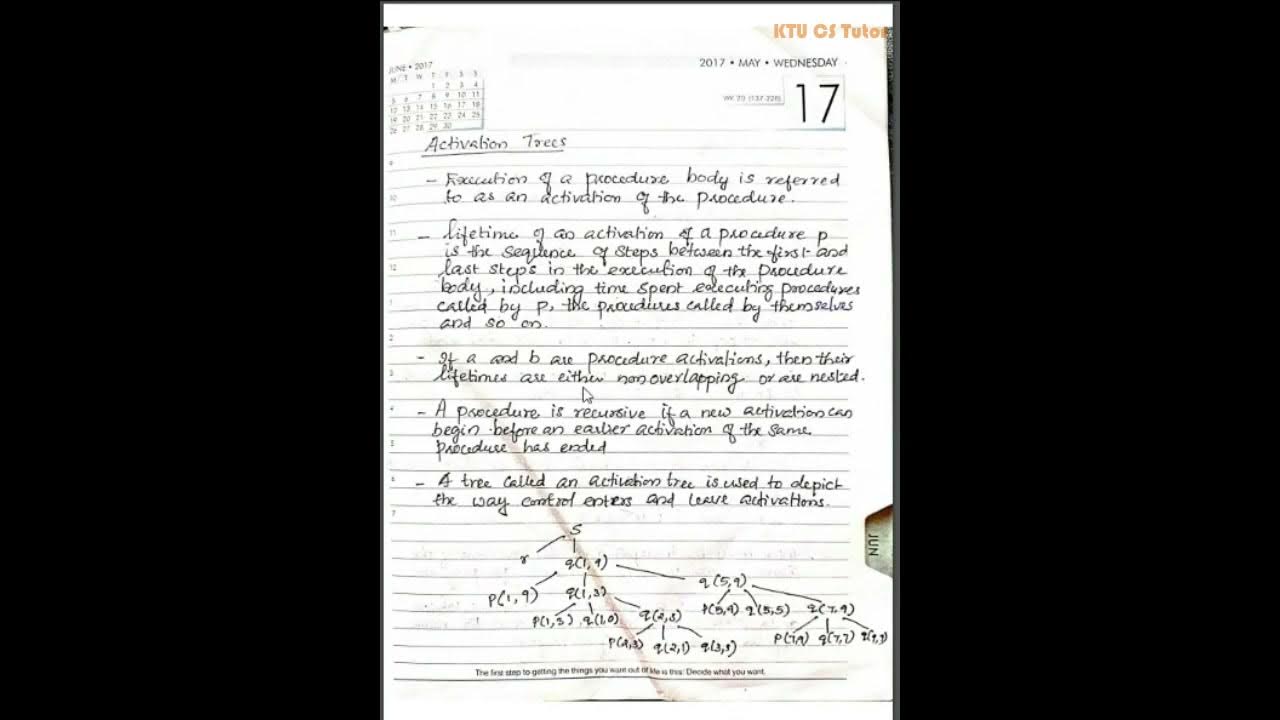 KTU CS Tutor
JUNE • 2017
2017 • MAY • WEDNESDAY
M T W T F S S
1 2 3 4
5 6 7 8 9 10 11
12 13 14 15 16 17 18
19 20 21 22 23 24 25
26 27 28 29 30
17
Activation Trees
- Execution of a procedure body is referred
to as an activation of the procedure.
- lifetime of an activation of a procedure p
is the sequence of steps between the first and
last steps in the execution of the procedure
body, including time spent executing procedures
called by p, the procedures called by themselves
and so on.
- If a and b are procedure activations, then their
lifetimes are either nonoverlapping or are nested.
- A procedure is recursive if a new activation can
begin before an earlier activation of the same
procedure has ended
- A tree called an activation tree is used to depict
the way control enters and leave activations.
S
r q(1,9)
p(1,9) q(1,3) q(5,9)
p(1,3) q(1,0) q(2,3) p(5,9) q(5,5) q(7,9)
p(2,3) q(2,1) q(3,3) p(7,9) q(7,7) q(9,9)
JUN
The first step to getting the things you want out of life is this: Decide what you want.